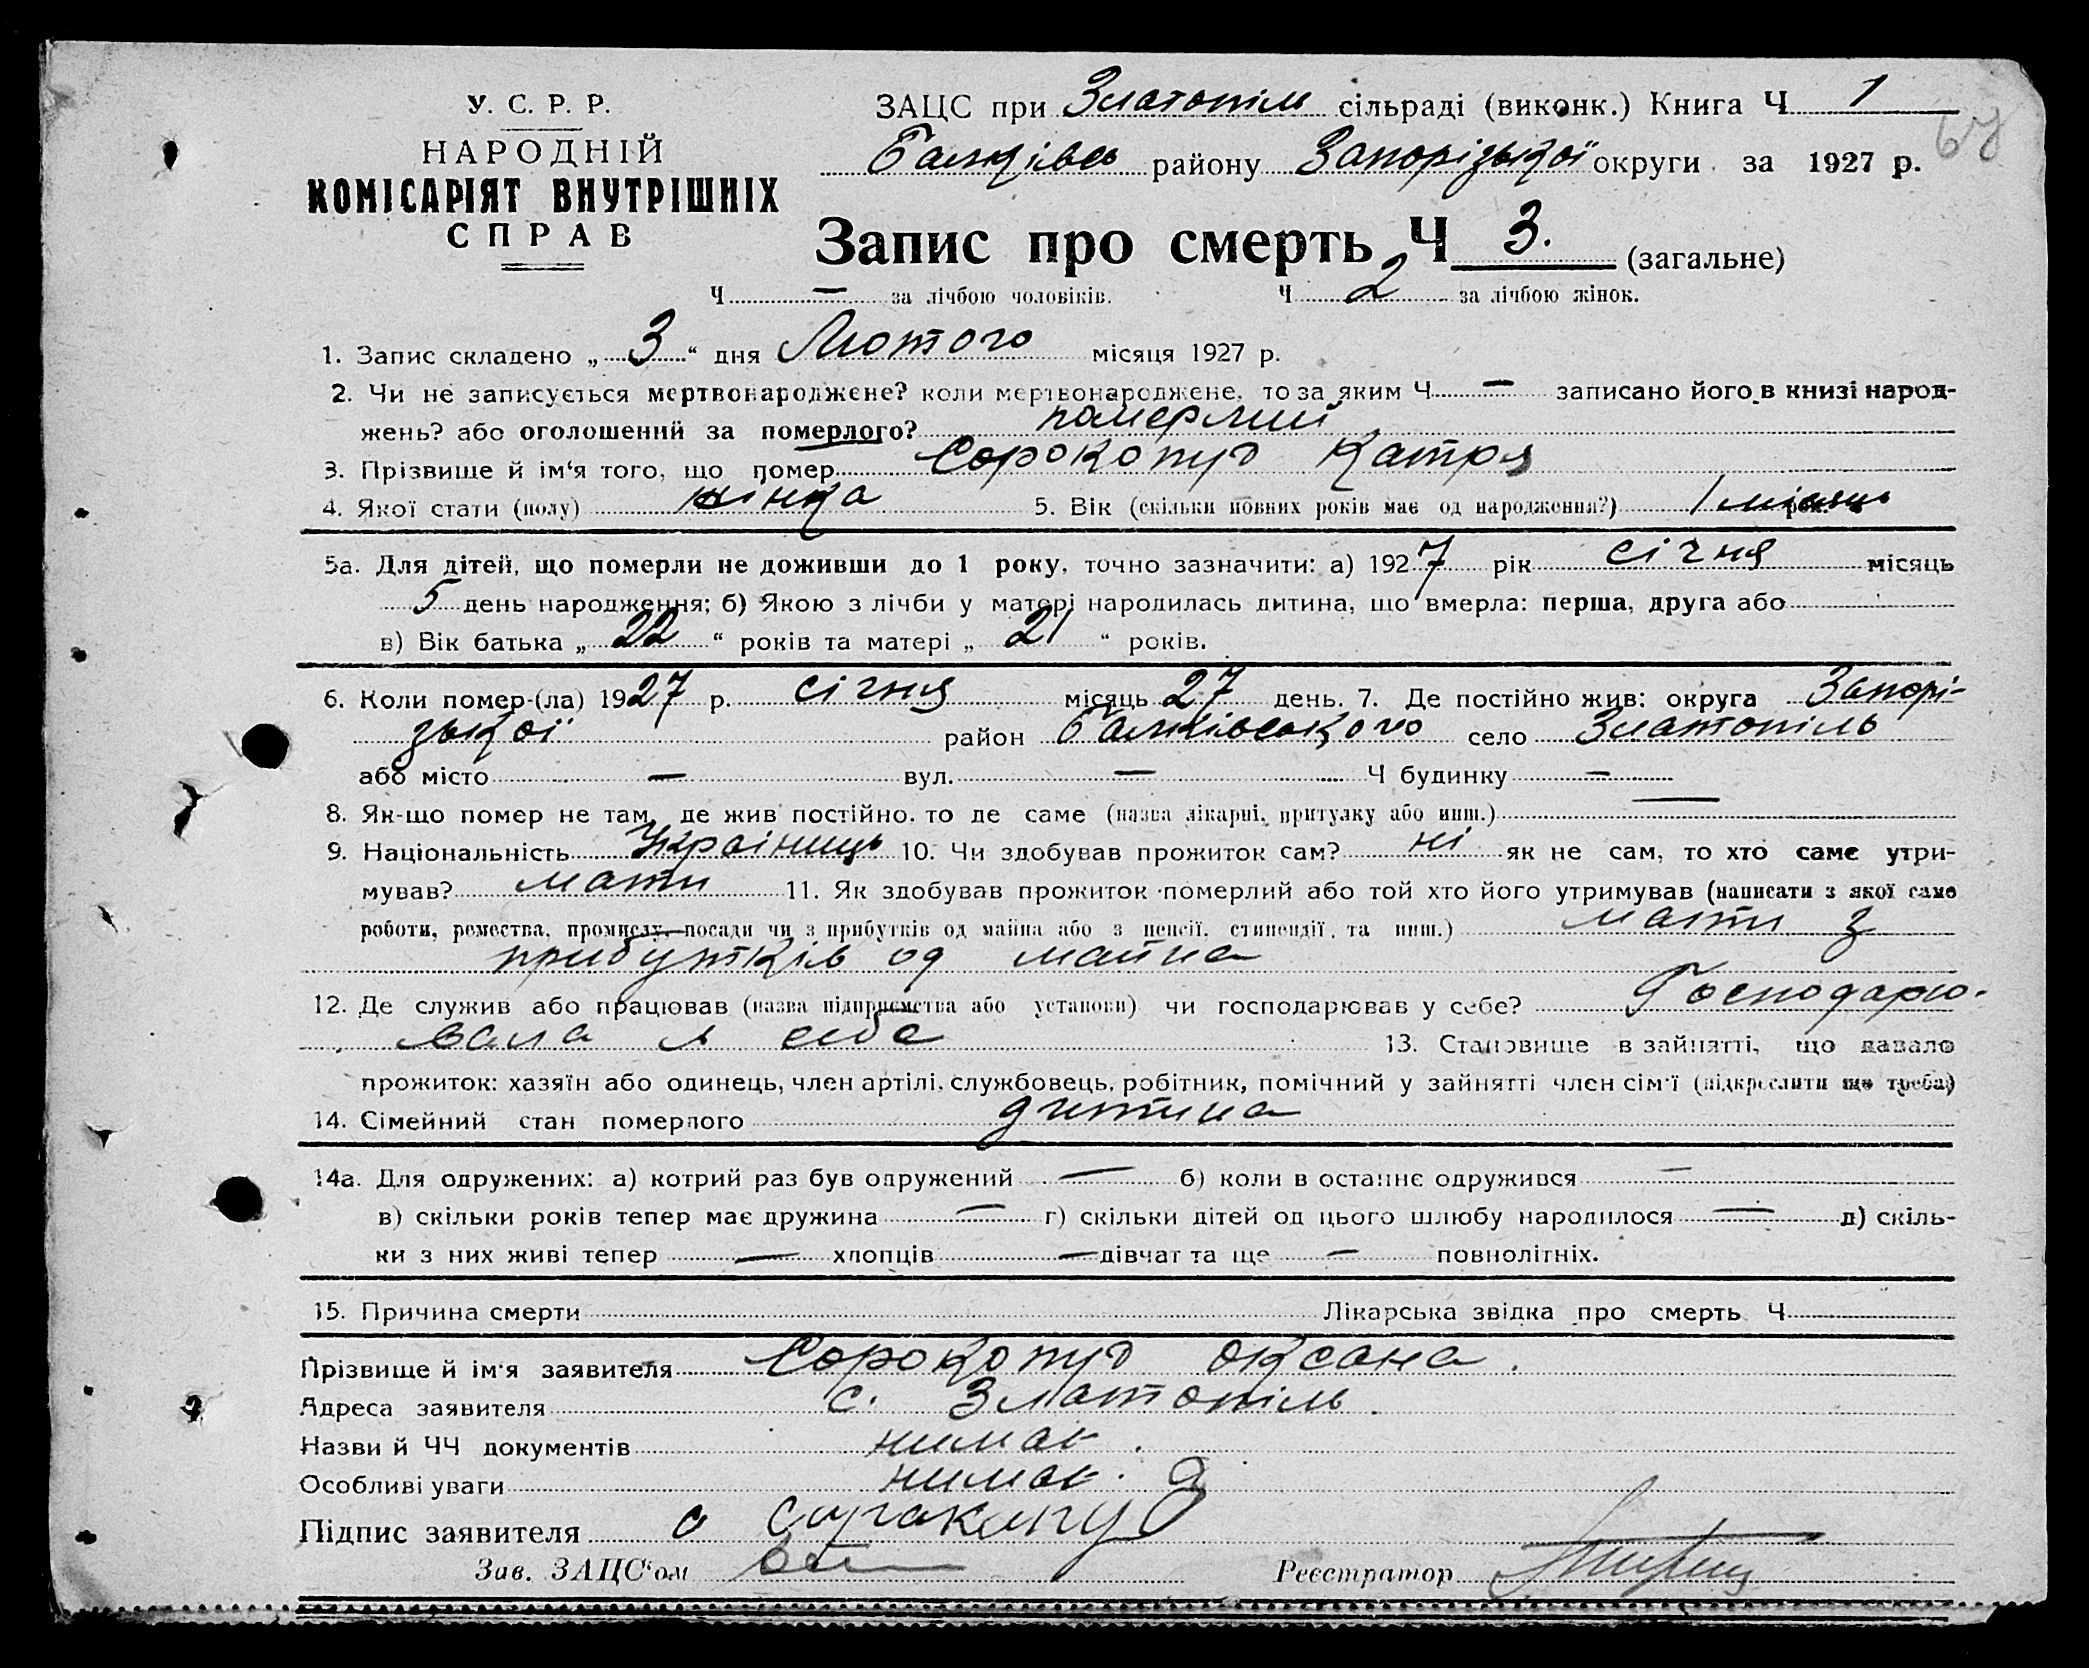 У. С. Р. Р.
НАРОДНІЙ
КОМІСАРІЯТ ВНУТРІШНІХ
СПРАВ
ЗАЦС при Златопіль сільраді (виконк.) Книга Ч 1
67
Балківсь району Запорізької округи за 1927 р.
Запис про смерть Ч 3. (загальне)
Ч — за лічбою чоловіків. Ч 2 за лічбою жінок.
1. Запис складено „ 3 “ дня Лютого місяця 1927 р.
2. Чи не записується мертвонароджене? коли мертвонароджене, то за яким Ч — записано його в книзі народ-
жень? або оголошений за померлого? померлий
3. Прізвище й ім‘я того, що помер Сорокопуд Катря
4. Якої стати (полу) жінка 5. Вік (скільки повних років має од народження?) 1 місяць
5а. Для дітей, що померли не доживши до 1 року, точно зазначити: а) 1927 рік січня місяць
5 день народження; б) Якою з лічби у матері народилась дитина, що вмерла: перша, друга або
в) Вік батька „ 22 “ років та матері „ 21 “ років.
6. Коли помер-(ла) 1927 р. січня місяць 27 день. 7. Де постійно жив: округа Запорі-
зької район Балківського село Златопіль
або місто — вул. — Ч будинку —
8. Як-що помер не там, де жив постійно, то де саме (назва лікарні, притулку або инш.) —
9. Національність Українець 10. Чи здобував прожиток сам? ні як не сам, то хто саме утри-
мував? мати 11. Як здобував прожиток померлий або той хто його утримував (написати з якої саме
роботи, ремества, промислу, посади чи з прибутків од майна або з пенсії, стипендії, та инш.) мати з
прибутків од майна
12. Де служив або працював (назва підприємства або установи) чи господарював у себе? Господарю-
вала у себе 13. Становище в зайнятті, що давало
прожиток: хазяїн або одинець, член артілі, службовець, робітник, помічний у зайнятті член сім‘ї (підкреслити що треба)
14. Сімейний стан померлого дитина
14а. Для одружених: а) котрий раз був одружений — б) коли в останнє одружився —
в) скільки років тепер має дружина — г) скільки дітей од цього шлюбу народилося — д) скіль-
ки з них живі тепер — хлопців — дівчат та ще — повнолітніх.
15. Причина смерти Лікарська звідка про смерть Ч
Прізвище й ім‘я заявителя Сорокопуд Оксана.
Адреса заявителя с. Златопіль.
Назви й ЧЧ документів нимає.
Особливі уваги нимає.
Підпис заявителя
Зав. ЗАЦС‘ом Реєстратор